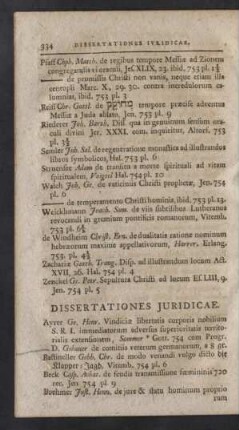 334 DISSERTATIONES JURIDICAE.
Pfaff Chph. Matth. de regibus tempore Messiae ad Zionem
congregandis ex oraculi Jes. XLIX, 23. ibid. 753 pl. 1½
— de promissis Christi non vanis, neque etiam illa
Marc. X, 29. 30. contra incredulorum ca-
lumnias, ibid. 753 pl. 3
Reiff Chr. Gottl. de tempore praecise adventus
Messiae a Juda ablato, Jen. 753 pl. 9
Riederer Joh. Barth. Diss. qua in genuinum sensum ora-
culi divini Jer. XXXI. com. inquiritur, Altorf. 753
pl. 3½
Semler Joh. Sal. de regeneratione monastica ad illustrandos
libros symbolicos, Hal. 753 pl. 6
Struensee Adam de transitu a morte spirituali ad vitam
spiritualem, Hal. 754 pl. 10
Walch Joh. Ge. de ratiociniis Christi prophetae, Jen. 754
pl. 6
— de temperamento Christi hominis, ibid. 753 pl. 13.
Weickhmann Joach. Sam. de viis subsidiisque Lutheranos
revocandi in gremium pontificis romanorum, Vitemb.
753 pl. 6¾
de Windheim Christ. Ern. de dualitatis ratione nominum
hebraeorum maxime appellativorum, Erlang.
753. pl. 4¾
Zachariae Gotth. Traug. Disp. ad illustrandum locum Act.
XVII, 26. Hal. 754 pl. 4
Zeuchel Ge. Petr. Sepultura Christi ad locum Es. LIII, 9.
Jen. 754 pl. 5
DISSERTATIONES JURIDICAE.
Ayrer Ge. Henr. Vindiciae libertatis corporis nobilium
S. R. I. immediatorum adversus superioritatis territo-
rialis extensionem, Gott. 754
D. de comitiis veterum germanorum, 8 gr.
Bastineller Gebh. Chr. de modo venandi vulgo dicto die
Klapper-Jagd, Vitemb. 754 pl. 6
Beck Casp. Achat. de feudis transmissione foemininis 720
rec. Jen. 754 pl. 9
Boehmer Just. Henn. de jure & statu hominum propriorum
rum